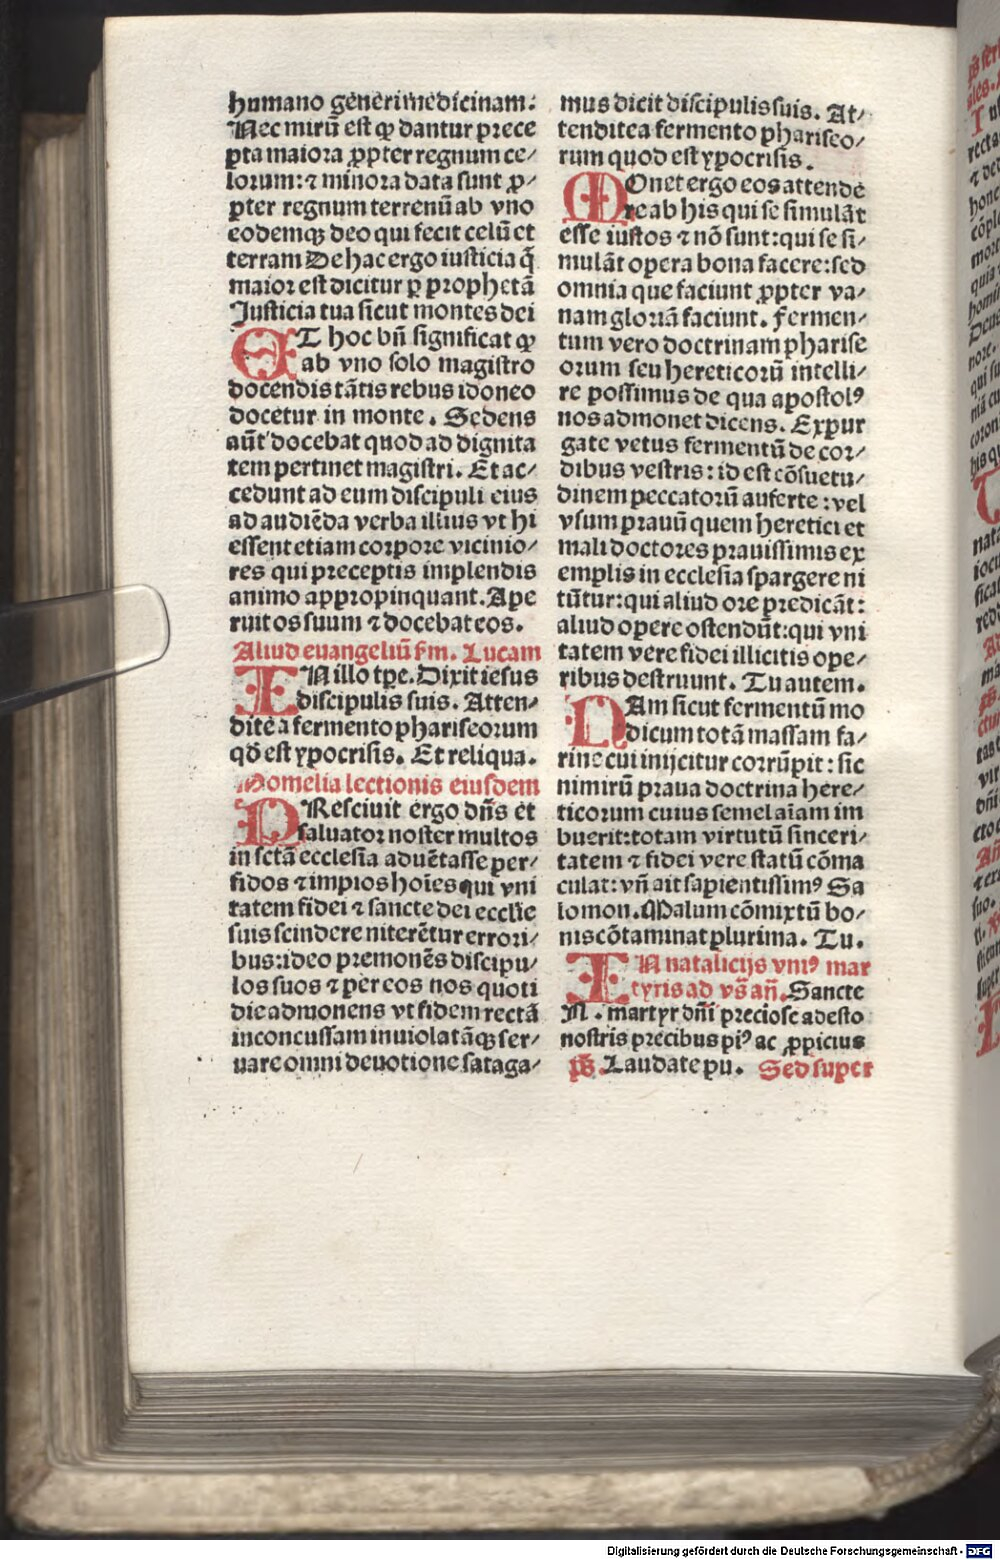 humano generi medicinam:
Nec mirũ est ꝙ dantur prece
pta maiora ꝓpter regnum ce/
lorum: ⁊ minora data sunt ꝓ/
pter regnum terrenũ ab vno
eodemqꝫ deo qui fecit celũ et
terram De hac ergo iusticia q̃
maior est dicitur ꝑ prophetã
Iusticia tua sicut montes dei
AT hoc bñ significat ꝙ
ab vno solo magistro
docendis tãtis rebus idoneo
docetur in monte. Sedens
aũt docebat quod ad dignita
tem pertinet magistri. Et ac/
cedunt ad eum discipuli eius
ad audiẽda verba illius vt hi
essent etiam corpore vicinio/
res qui preceptis implendis
animo appropinquant. Ape
ruit os suum ⁊ docebat eos.
Aliud euangeliũ ẜm. Lucam
IN illo tꝑe. Dixit iesus
discipulis suis. Atten/
dite a fermento phariseorum
qđ est ypocrisis. Et reliqua.
Homelia lectionis eiusdem
PResciuit ergo dñs et
saluator noster multos
in sctã ecclesia aduẽtasse per/
fidos ⁊ impios hoĩes qui vni
tatem fidei ⁊ sancte dei ecclie
suis scindere niterẽtur errori/
bus: ideo premonẽs discipu/
los suos ⁊ per eos nos quoti
die admonens vt fidem rectã
inconcussam inuiolatãqꝫ ser/
uare omni deuotione sataga/
mus dicit discipulis suis. At/
tendite a fermento phariseo/
rum quod est ypocrisis.
MOnet ergo eos attende
re ab his qui se simulãt
esse iustos ⁊ nõ sunt: qui se si/
mulãt opera bona facere: sed
omnia que faciunt ꝓpter va/
nam gloriã faciunt. Fermen/
tum vero doctrinam pharise
orum seu hereticorũ intelli/
re possimus de qua apostolꝰ
nos admonet dicens. Expur
gate vetus fermentũ de cor/
dibus vestris: id est cõsuetu/
dinem peccatorũ auferte: vel
vsum prauũ quem heretici et
mali doctores prauissimis ex
emplis in ecclesia spargere ni
tũtur: qui aliud ore predicãt:
aliud opere ostendũt: qui vni
tatem vere fidei illicitis ope/
ribus destruunt. Tu autem.
NAm sicut fermentũ mo
dicum totã massam fa/
rine cui inijcitur corrũpit: sic
nimirũ praua doctrina here/
ticorum cuius semel aĩam im
buerit: totam virtutũ sinceri/
tatem ⁊ fidei vere statũ cõma
culat: vñ ait sapientissimꝰ Sa
lomon. Malum cõmixtũ bo/
nis cõtaminat plurima. Tu.
IN natalicijs vniꝰ mar
tyris ad vs̃ añ. Sancte
N. martyr dñi preciose adesto
nostris precibus piꝰ ac ꝓpicius
ps̃. Laudate pu. Sed super
Digitalisierung gefördert durch die Deutsche Forschungsgemeinschaft - DFG